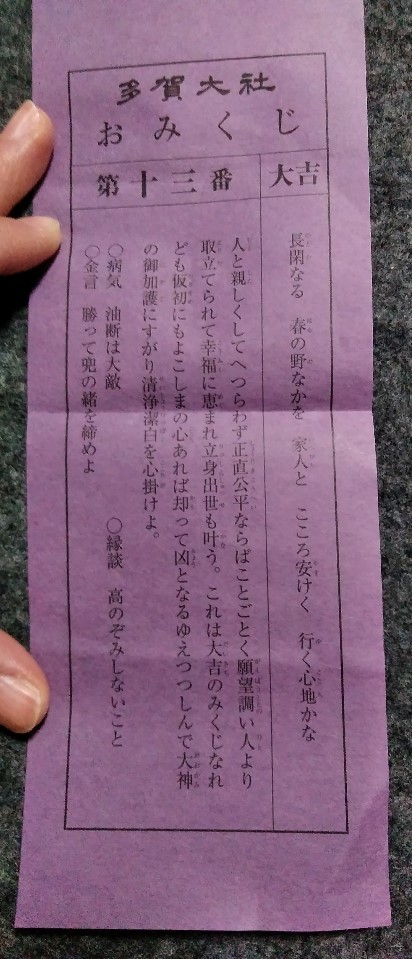 多賀大社
おみくじ
第十三番
大吉
長閑なる 春の野なかを 家人と こころ安けく 行く心地かな
人と親しくしてへつらわず正直公平ならばことごとく願望調い人より
取立てられて幸福に恵まれ立身出世も叶う。これは大吉のみくじなれ
ども仮初にもよこしまの心あれば却って凶となるゆえつつしんで大神
の御加護にすがり清浄潔白を心掛けよ。
○病気 油断は大敵 ○縁談 高のぞみしないこと
○金言 勝って兜の緒を締めよ